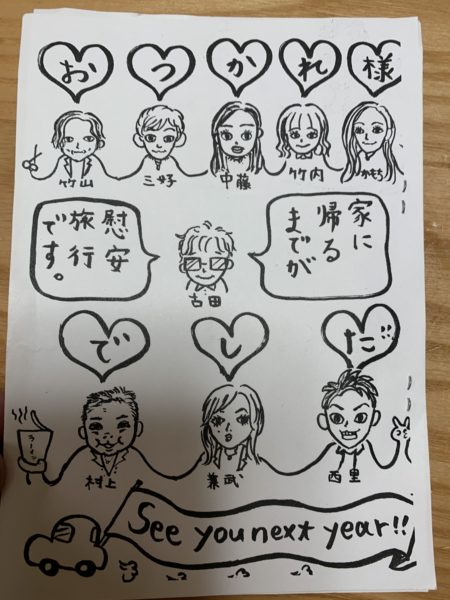 おつかれ様
竹山 三好 中藤 竹内 かもち
家に
帰る
までが
慰安
旅行
です。
古田
でした!!
ラーメン
村上 兼武 西里
See you next year!!